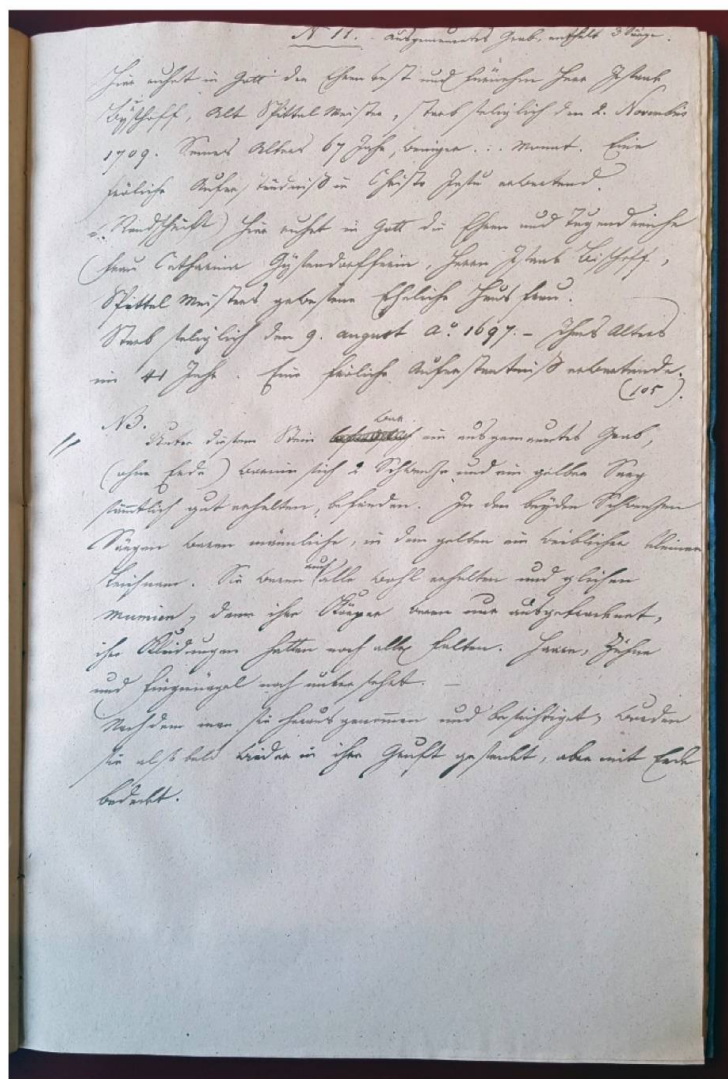 N° 11. - ausgemauertes Grab, enthält 3 Särge.
Hier ruhet in Gott der Ehren vest und fürnehm Herr Isaak
Byschoff, Alt Spittel Meister, starb seliglich den 2. Novembris
1709. Seines Alters 67 Jahr, weniger . : . Monat. Eine
fröliche Aufer, ständniß in Christo Jesu erwartend.
(Randschrift) Hier ruhet in Gott die Ehren und Tugendreiche
Frau Catharina, Herrn Isaak Bischoff,
Spittel Meisters gewesene Eheliche Haus frau.
Starb seliglich den 9. august A° 1697. - Ihres Alters
im 41 Jahr. Eine fröliche Auferstentniß erwartende.
(105).
NB.
war
Unter diesem Stein ein ausgemauertes Grab,
(ohne Erde) worin sich 2 Schwarze und ein gelber Sarg
sämtlich gut erhalten, befanden. In den beyden Schwarzen
Särgen waren männliche, in dem gelben ein weiblicher kleiner
Leichnam. Sie waren alle wohl erhalten und glichen
Mumien, denn ihre Körper waren nur ausgetrocknet,
ihre Kleidungen hatten noch alle falten. Haare, Zähne
und Fingernägel noch unversehrt. -
Nachdem man sie heraus genommen und besichtiget, wurden
sie alsobald wieder in ihre Gruft gesenkt, aber mit Erde
bedeckt.